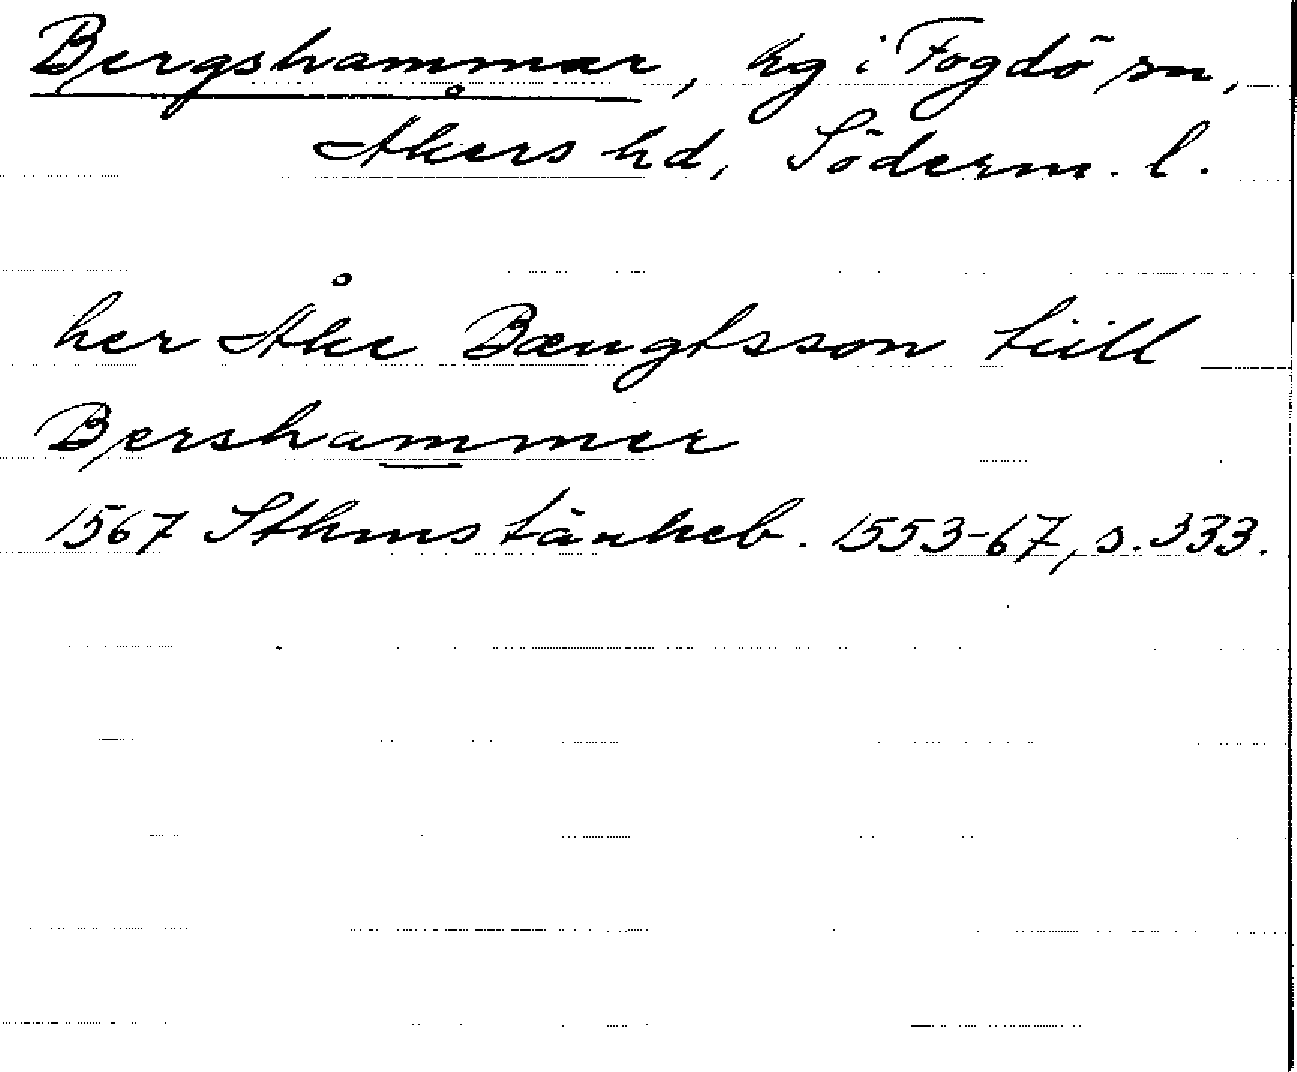 Bergshammar, hg i Fogdö sn,
Åkers hd, Söderm. l.
her Åke Bængtsson tiill
Bershammer
1567 Sthms tänkeb. 1553-67, s. 333.